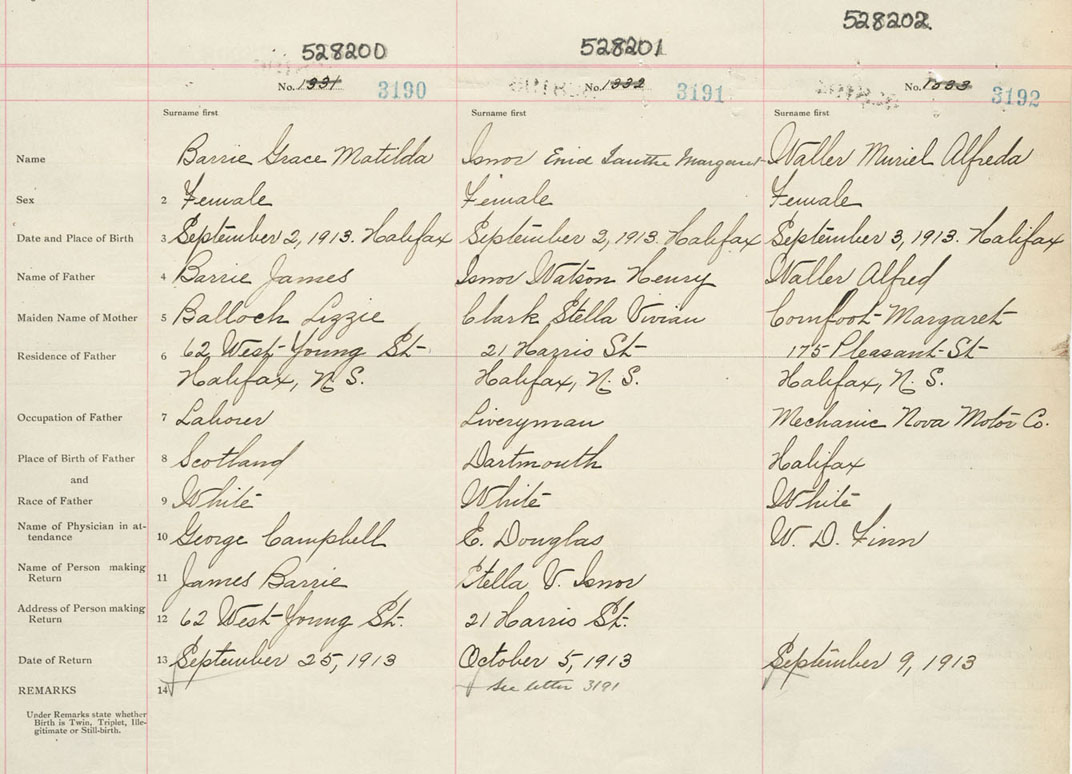 528200 528201 528202
No. 1331 3190 No. 1332 3191 No. 1333 3192
Surname first Surname first Surname first
Name Barrie Grace Matilda Isnor Enid Ianthe Margaret Waller Muriel Alfreda
Sex 2 Female Female Female
Date and Place of Birth 3 September 2, 1913. Halifax September 2, 1913. Halifax September 3, 1913. Halifax
Name of Father 4 Barrie James Isnor Watson Henry Waller Alfred
Maiden Name of Mother 5 Balloch Lizzie Clark Stella Vivian Cornfoot Margaret
Residence of Father 6 62 West Young St 21 Harris St 175 Pleasant St
Halifax, N.S. Halifax, N.S. Halifax, N.S.
Occupation of Father 7 Laborer Liveryman Mechanic Nova Motor Co.
Place of Birth of Father 8 Scotland Dartmouth Halifax
and
Race of Father 9 White White White
Name of Physician in at-
tendance 10 George Campbell E. Douglas W. D. Finn
Name of Person making
Return 11 James Barrie Stella V. Isnor
Address of Person making
Return 12 62 West Young St. 21 Harris St.
Date of Return 13 September 25, 1913 October 5, 1913 September 9, 1913
REMARKS 14 See letter 3191
Under Remarks state whether
Birth is Twin, Triplet, Ille-
gitimate or Still-birth.